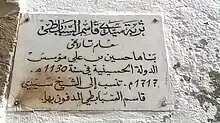 تربة سيدي قاسم السبابطي
معلم تاريخي
بناها حسين بن علي مؤسس
الدولة الحسينية في سنة 1130هـ
1717م. تنسب إلى الشيخ سيدي
قاسم السبابطي المدفون بها.